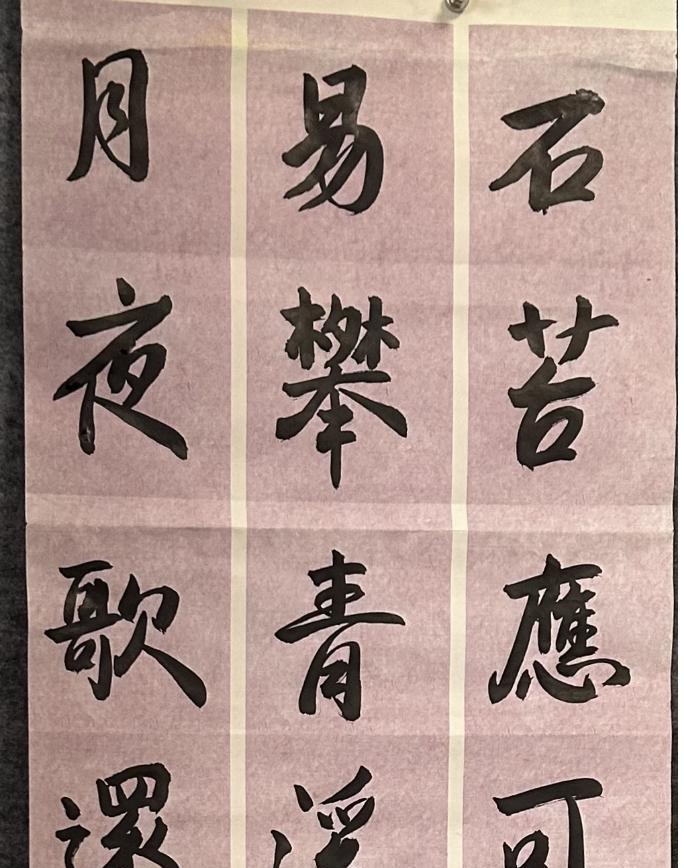 石苔應可
易攀青溪
月夜歌還